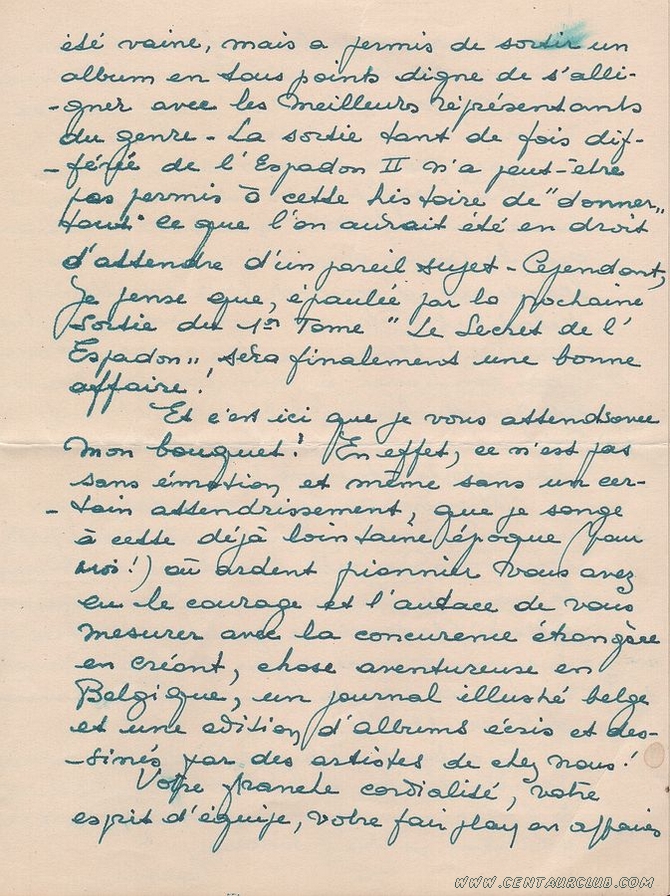 été vaine, mais a permis de sortir un
album en tous points digne de s'alli-
-gner avec les meilleurs représentants
du genre - La sortie tant de fois dif-
-férée de l'Espadon II n'a peut-être
pas permis à cette histoire de "donner„
tout" ce que l'on aurait été en droit
d'attendre d'un pareil sujet - Cependant,
Je pense que, épaulée par la prochaine
Sortie du 1er Tome "Le Secret de l'
Espadon„ sera finalement une bonne
affaire!
Et c'est ici que je vous attends avec
mon bouquet! En effet, ce n'est pas
sans émotion, et même sans un cer-
-tain attendrissement, que je songe
à cette déjà lointaine époque (pour
moi!) où ardent pionnier vous avez
eu le courage et l'audace de vous
mesurer avec la concurence étrangère
en créant, chose aventureuse en
Belgique, un journal illustré belge
et une edition d'albums écris et des-
-sinés par des artistes de chez nous!
Votre franche cordialisé, votre
esprit d'équipe, votre fair play en affaires
WWW.CENTAURCLUB.COM